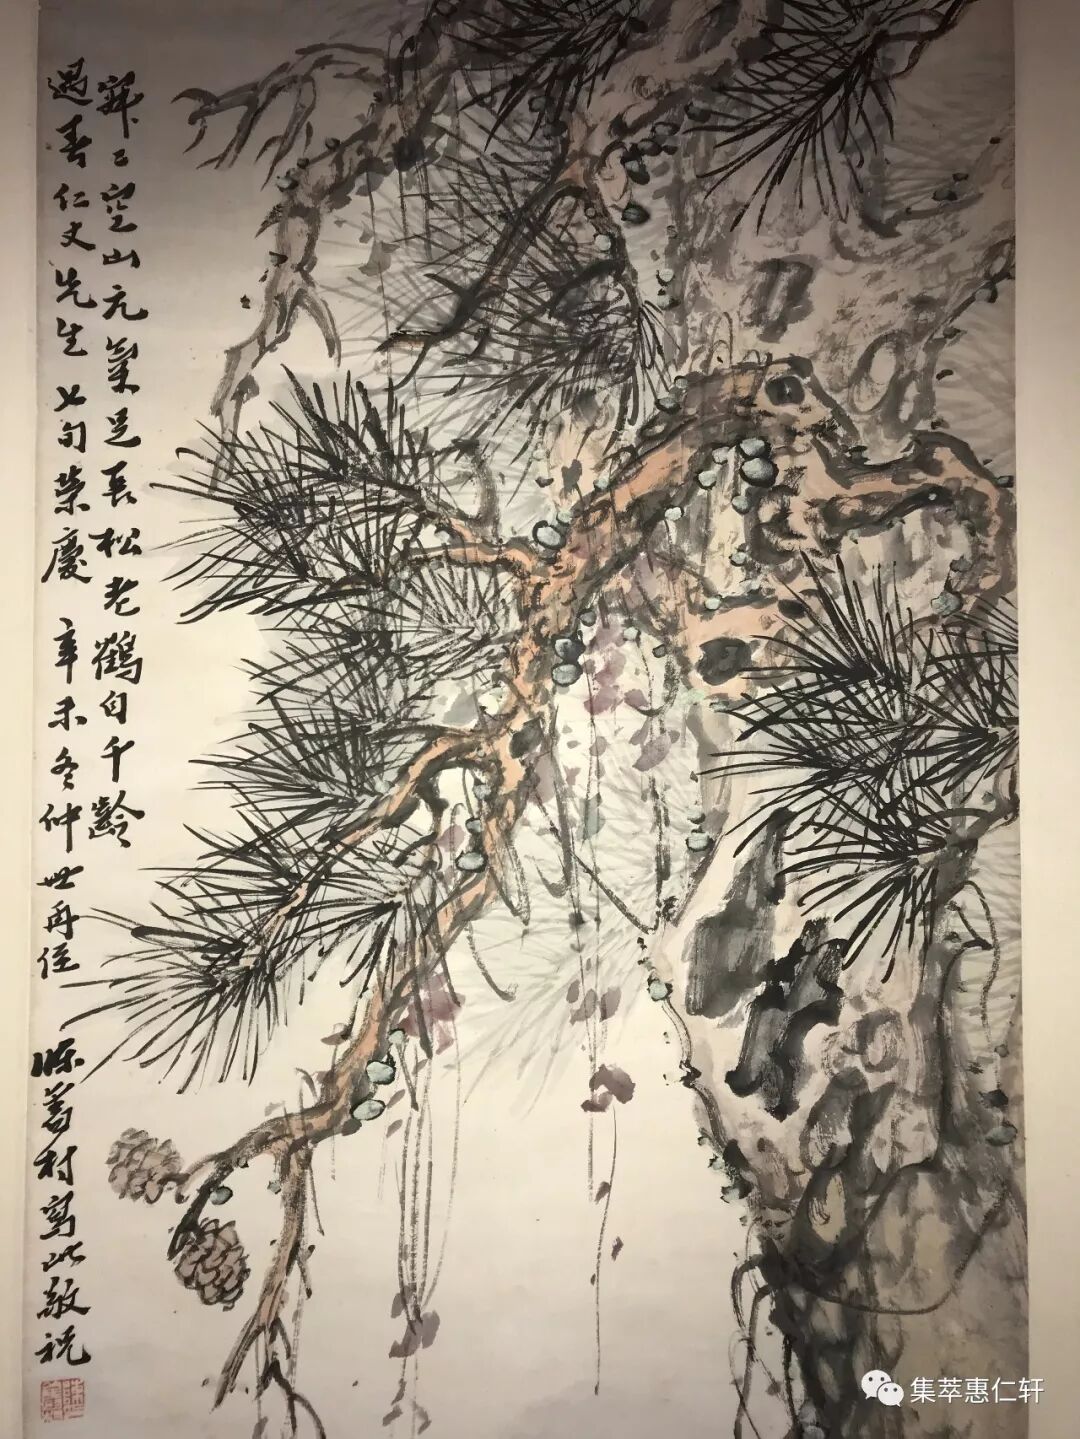 寂々空山元氣足長松老鶴自千齡
遇春仁丈先生七旬榮慶 辛未冬仲世再侄 陳舊村寫此敬祝
集萃惠仁轩